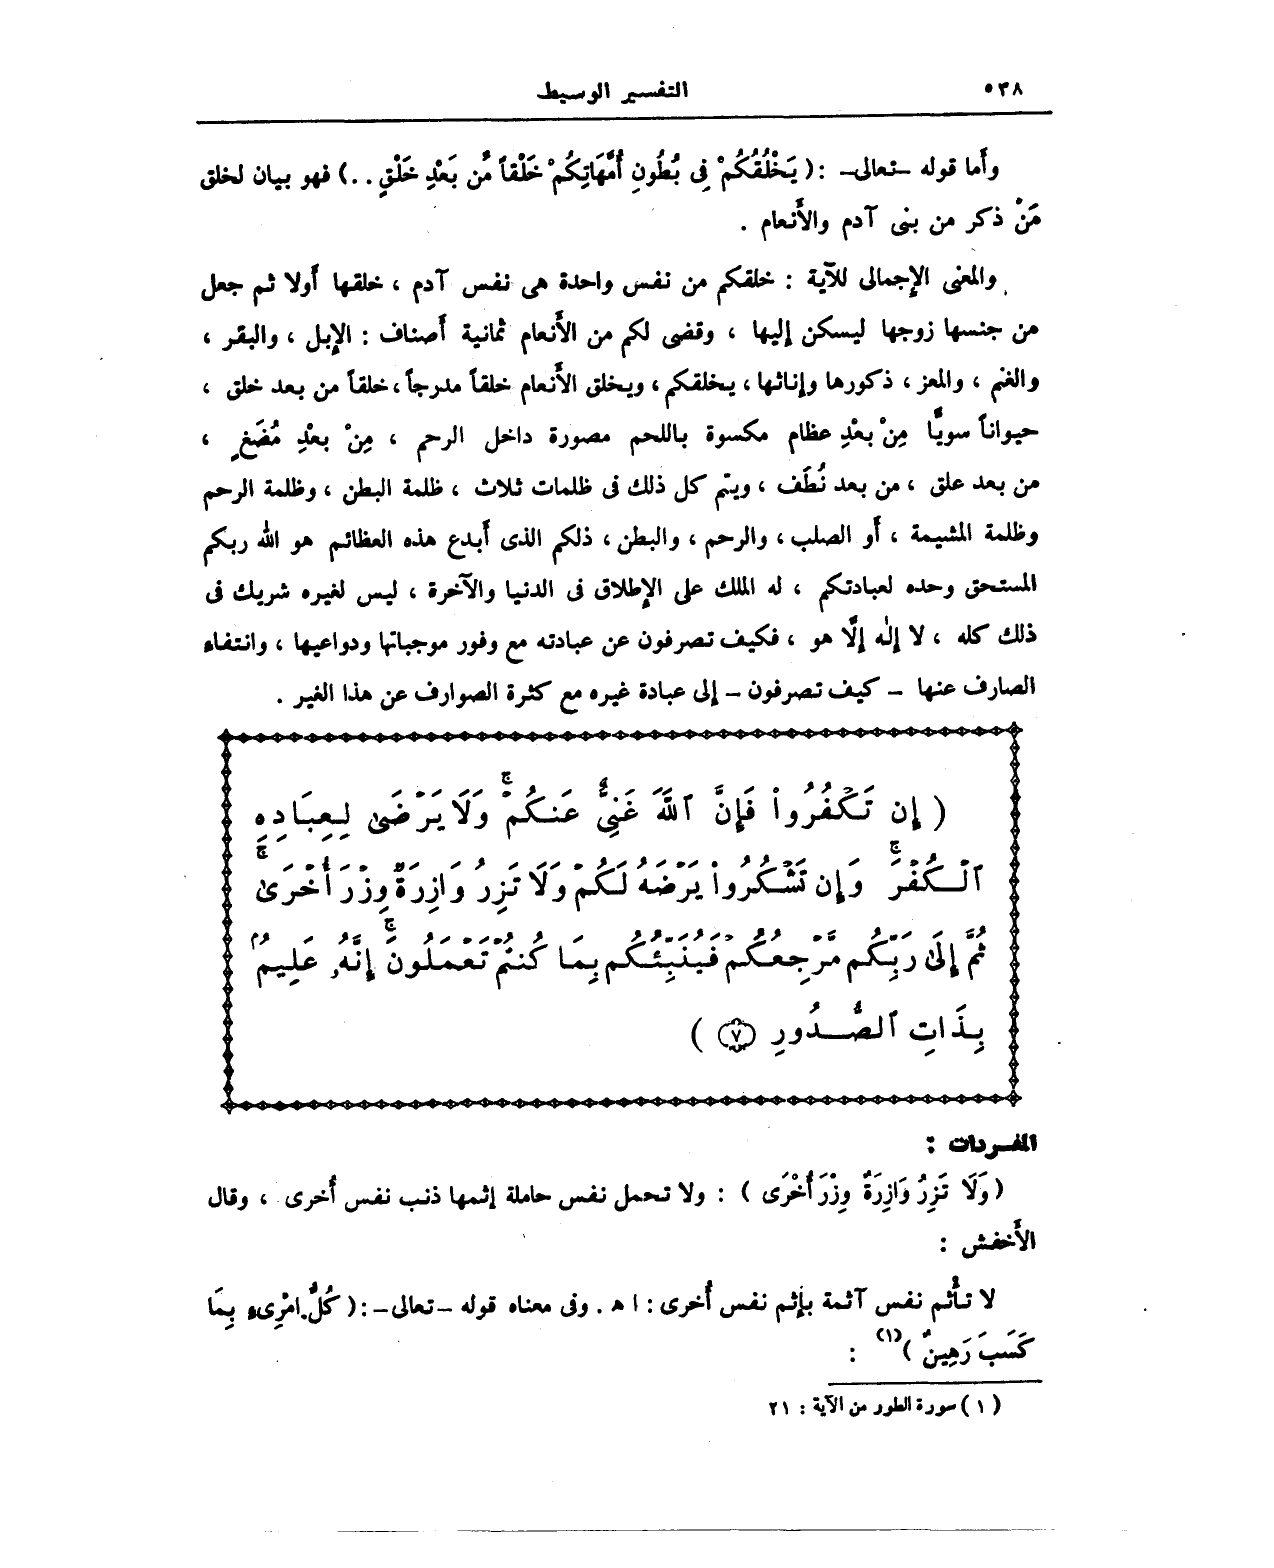 ٥٣٨ التفسير الوسيط
وأما قوله -تعالى- : ( يَخْلُقُكُمْ فِى بُطُونِ أُمَّهَاتِكُمْ خَلْقاً مِّن بَعْدِ خَلْقٍ . . ) فهو بيان لخلق
مَنْ ذكر من بنى آدم والأَنعام .
والمعنى الإِجمالى للآية : خلقكم من نفس واحدة هى نفس آدم ، خلقها أَولا ثم جعل
من جنسها زوجها ليسكن إليها ، وقضى لكم من الأَنعام ثمانية أَصناف : الإِبل ، والبقر ،
والغنم ، والمعز ، ذكورها وإناثها ، يخلقكم ، ويخلق الأَنعام خلقاً مدرجاً ، خلقاً من بعد خلق ،
حيواناً سويًّا مِنْ بعْدِ عظام مكسوة باللحم مصورة داخل الرحم ، مِنْ بعْدِ مُضَغٍ ،
من بعد علق ، من بعد نُطَف ، ويتم كل ذلك فى ظلمات ثلاث ، ظلمة البطن ، وظلمة الرحم
وظلمة المشيمة ، أَو الصلب ، والرحم ، والبطن ، ذلكم الذى أَبدع هذه العظائم هو الله ربكم
المستحق وحده لعبادتكم ، له الملك على الإِطلاق فى الدنيا والآخرة ، ليس لغيره شريك فى
ذلك كله ، لا إِلٰه إِلَّا هو ، فكيف تصرفون عن عبادته مع وفور موجباتها ودواعيها ، وانتفاء
الصارف عنها - كيف تصرفون - إلى عبادة غيره مع كثرة الصوارف عن هذا الغير .
( إِن تَكْفُرُوا۟ فَإِنَّ ٱللَّهَ غَنِىٌّ عَنكُمْ ۖ وَلَا يَرْضَىٰ لِعِبَادِهِ
ٱلْكُفْرَ ۖ وَإِن تَشْكُرُوا۟ يَرْضَهُ لَكُمْ ۗ وَلَا تَزِرُ وَازِرَةٌ وِزْرَ أُخْرَىٰ ۗ
ثُمَّ إِلَىٰ رَبِّكُم مَّرْجِعُكُمْ فَيُنَبِّئُكُم بِمَا كُنتُمْ تَعْمَلُونَ ۚ إِنَّهُۥ عَلِيمٌۢ
بِذَاتِ ٱلصُّدُورِ ٧ )
المفردات :
( وَلَا تَزِرُ وَازِرَةٌ وِزْرَ أُخْرَى ) : ولا تحمل نفس حاملة إثمها ذنب نفس أُخرى ، وقال
الأَخفش :
لا تأْثم نفس آثمة بإثم نفس أُخرى : ا هـ . وفى معناه قوله -تعالى- : ( كُلُّ امْرِىءٍ بِمَا
كَسَبَ رَهِينٌ ) (١) :
( ١ ) سورة الطور من الآية : ٢١